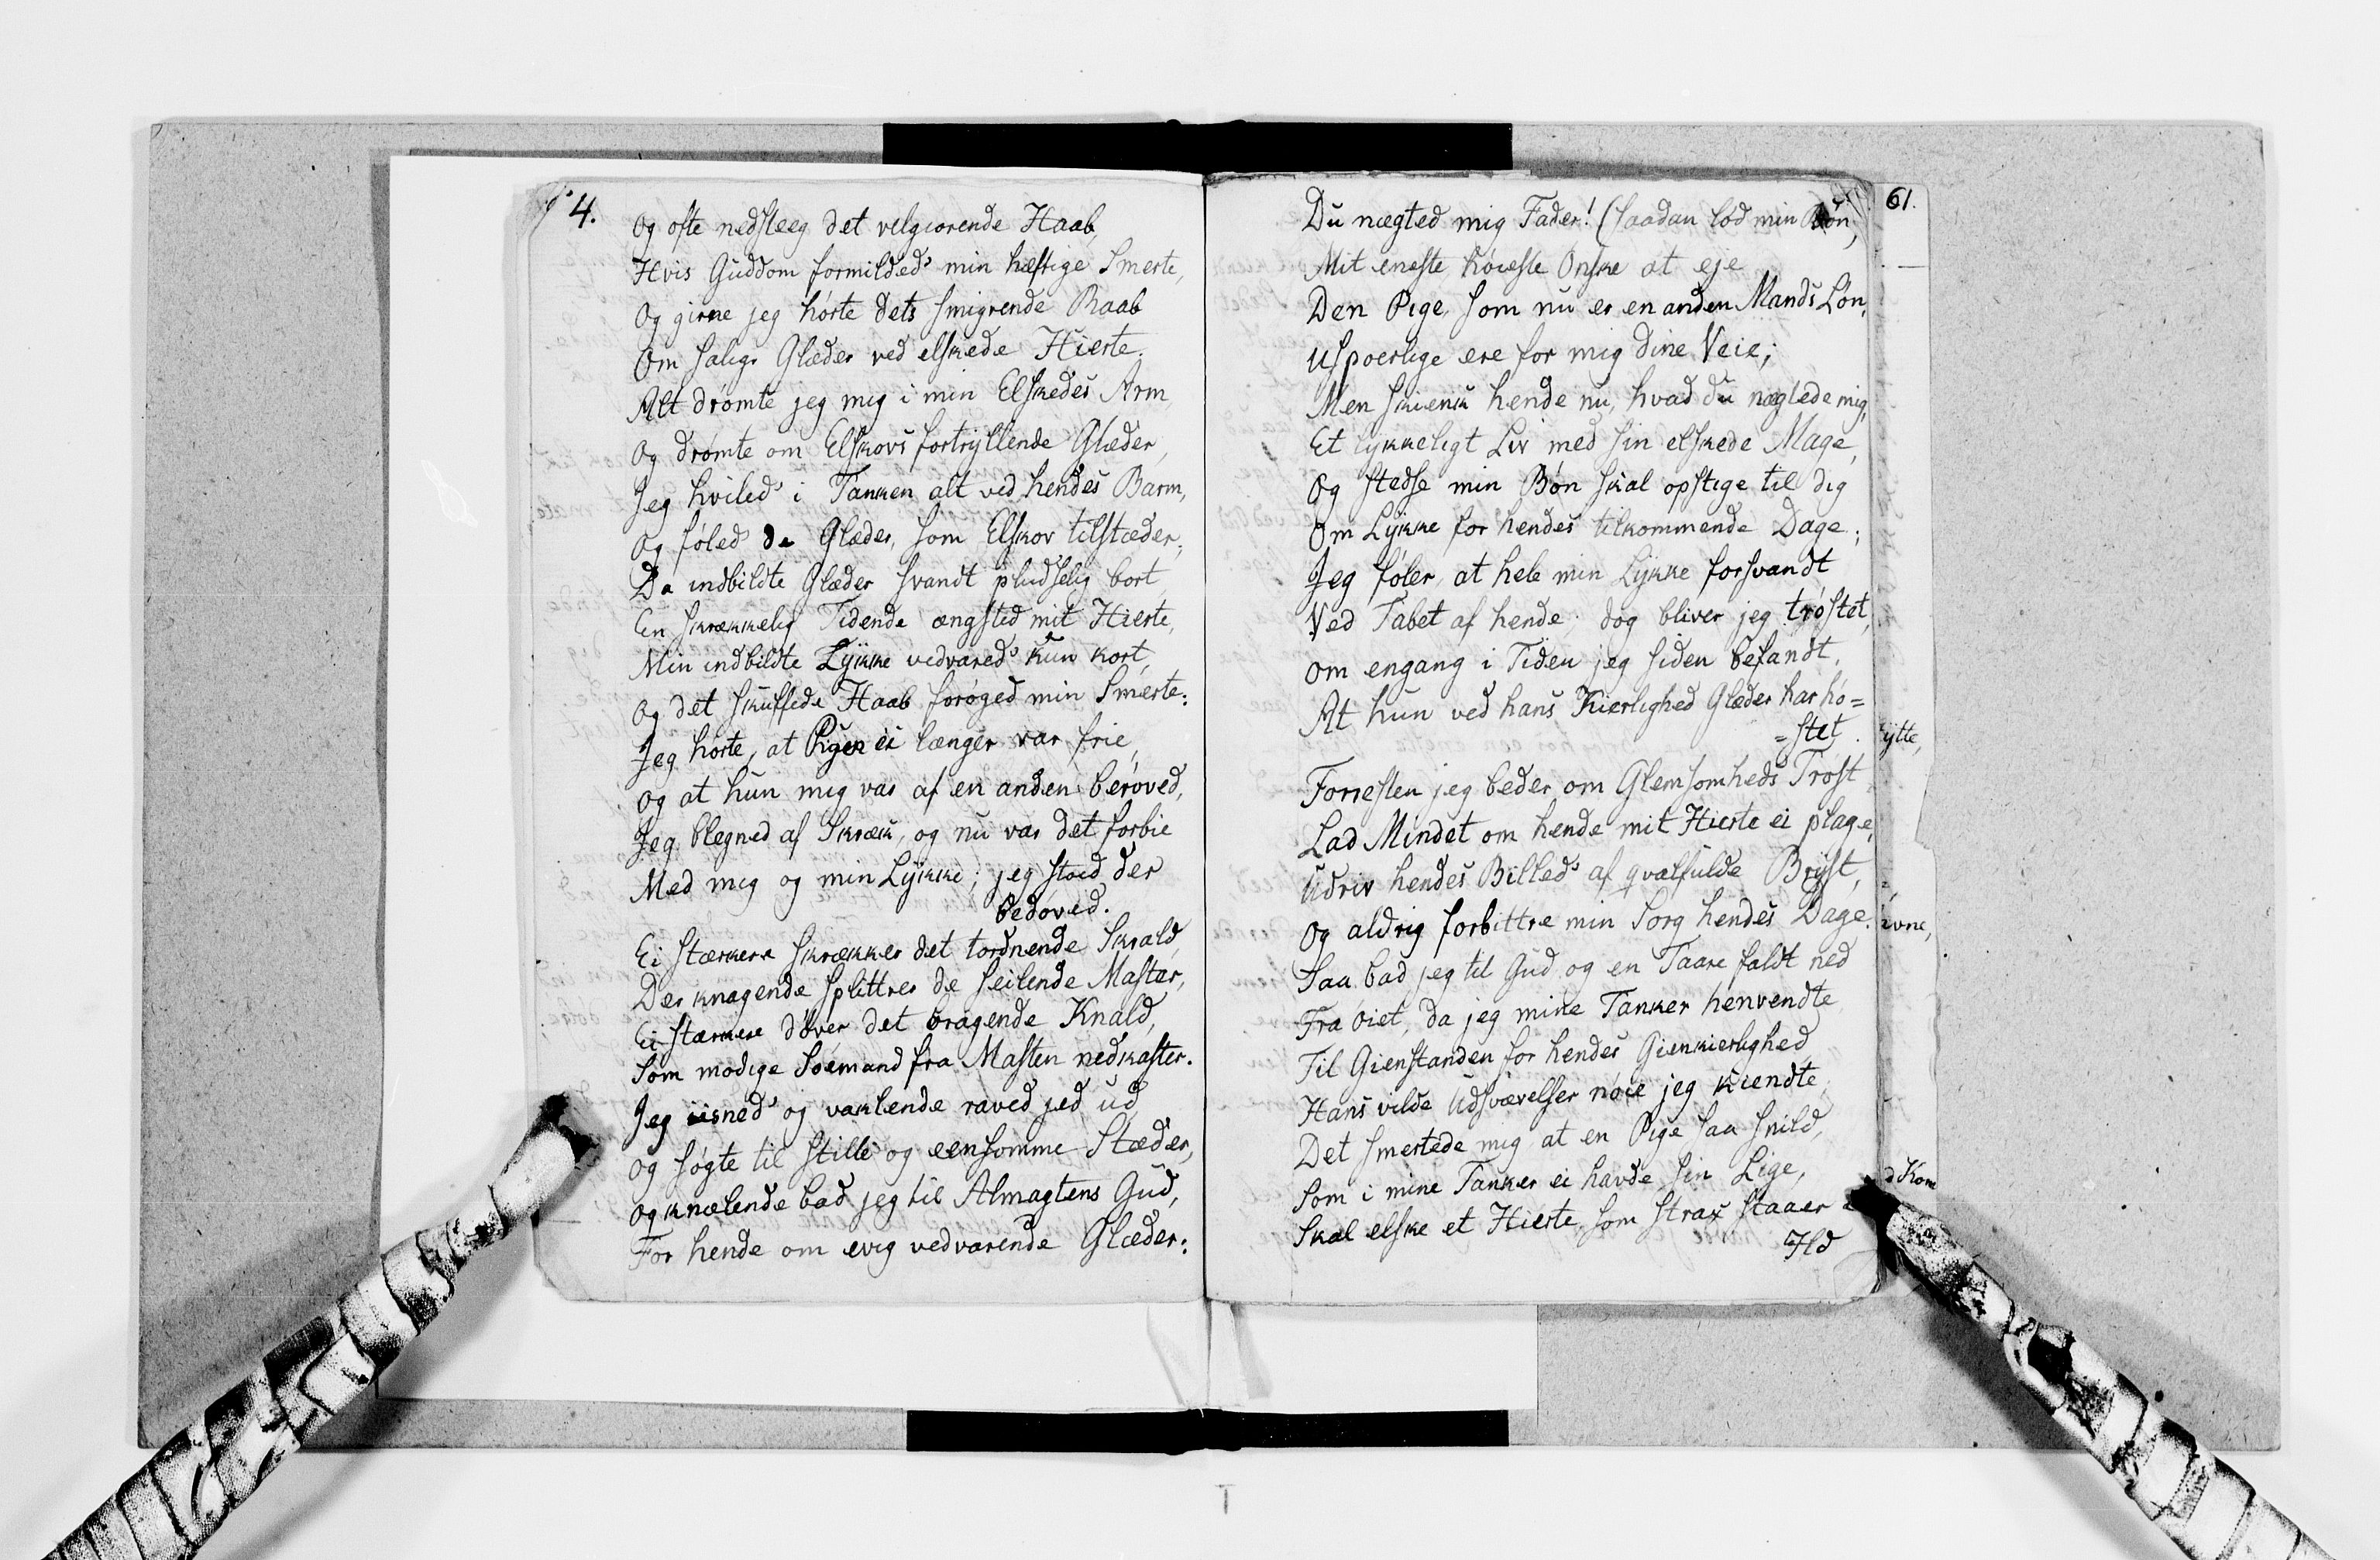 4.
Og ofte nedsteeg det velgiørende Haab,
Hvis Guddom formilded' min hæftige Smerte,
Og girne jeg hørte dets smigrende Raab
Om salige Glæder ved elskede Hierte.
Alt drømte jeg mig i min Elskedes Arm
Og drømte om Elskovs fortryllende Glæder,
Jeg hviled' i Tanken alt ved hendes Barm,
Og føled' de Glæder, som Elskov tilstæder;
Da indbildte Glæder svandt pludselig bort,
En skrækkelig Tidende ængsted mit Hierte,
Min indbildte Lykke vedvared' kun kort,
Og det skuffede Haab forøged min Smerte:
Jeg hørte, at Pigen ei længer var frie,
Og at hun mig var af en anden berøved,
Jeg blegned af Skræk, og nu var det forbie
Med mig og min Lykke; jeg stod der
bedøved.
Ei stærkere skrækker det tordnende Skrald,
Der knagende splittrer de seilende Master,
Ei stærkere døver det bragende Knald,
Som modige Søemand fra Masten nedkaster.
Jeg iisned' og vaklende raved jed ud
Og søgte til stille og eensomme Stæder,
Og knælende bad jeg til Almagtens Gud,
For hende om evig vedvarende Glæder:
Du nægted mig Fader! (saadan lød min Bøn,
Mit eneste høieste Ønske at eje
Den Pige, som nu er en anden Mands Løn,
Uspoerlige ere for mig dine Veie;
Men skienk hende nu, hvad du nægtede mig,
Et lykkeligt Liv med sin elskede Mage,
Og stedse min Bøn skal opstige til dig
Om Lykke for hendes tilkommende Dage;
Jeg føler, at hele min Lykke forsvandt
Ved Tabet af hende; dog bliver jeg trøstet,
Om engang i Tiden jeg siden befandt,
At hun ved hans Kierlighed Glæder har hø=
=stet.
Forresten jeg beder om Glemsomheds Trøst
Lad Mindet om hende mit Hierte ei plage,
Udriv hendes Billed' af qvalfulde Bryst,
Og aldrig forbittre min Sorg hendes Dage.
Saa bad jeg til Gud og en Taare faldt ned
Fra Øiet, da jeg mine Tanker henvendte
Til Gienstanden for hendes Gienkierlighed,
Hans vilde Udsvævelser nøie jeg kiendte,
Det smertede mig at en Pige saa snild,
Som i mine Tanker ei havde sin Lige,
Skal elske et Hierte, som strax staaer
Ild
61.
ytte,
ivne,
d Kom